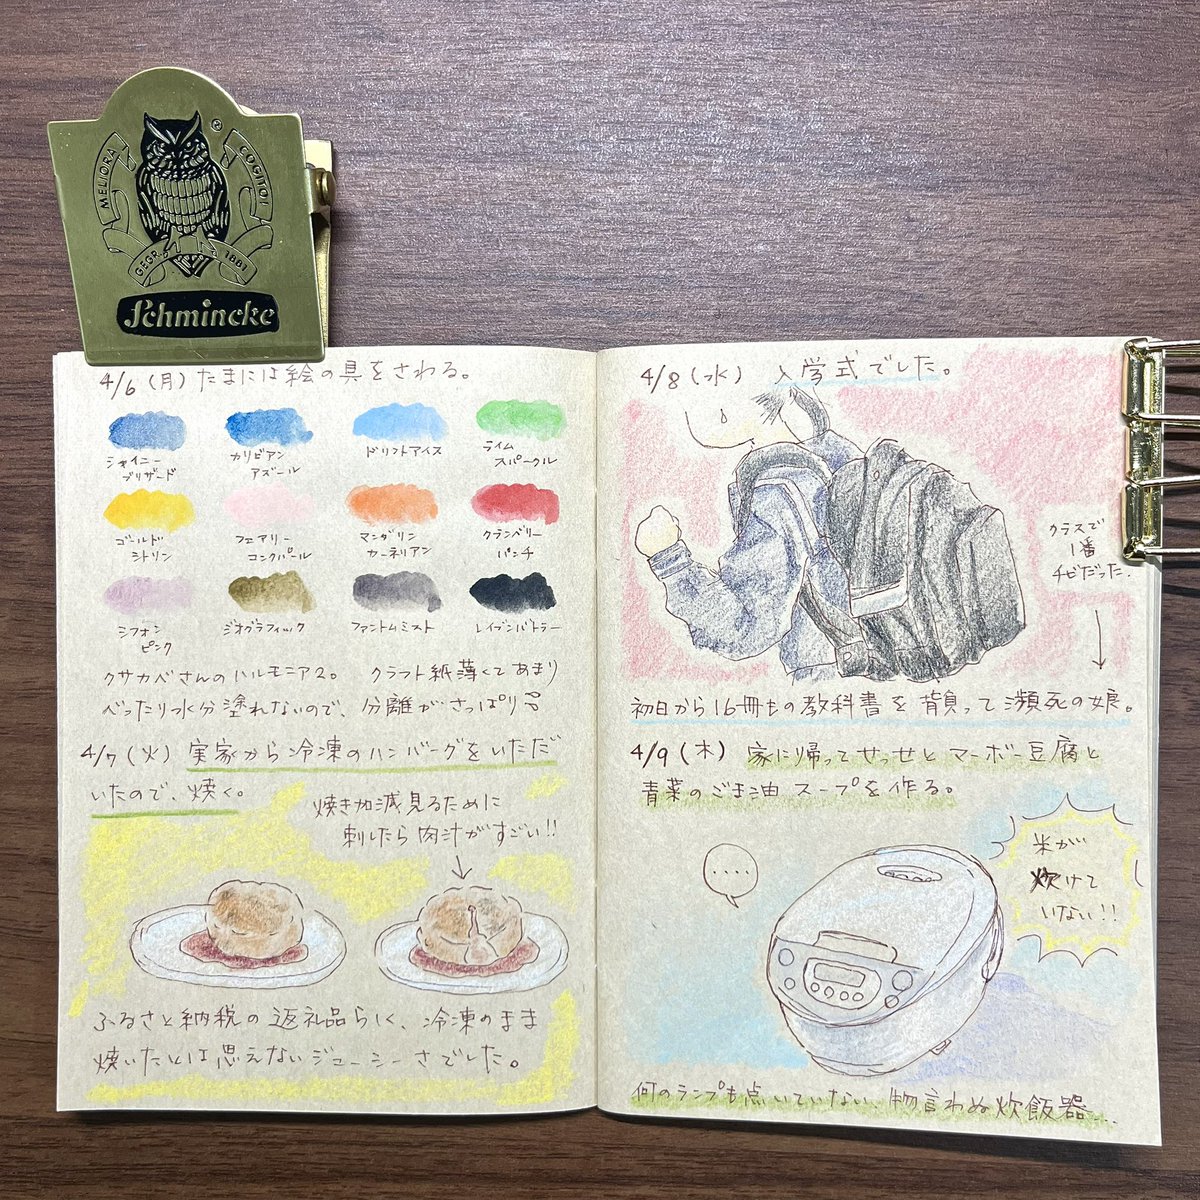 MELIORA
COGITO!
GEGR. 1881
®
Schmincke
4/6(月)たまには絵の具をさわる。
シャイニー
ブリザード
カリビアン
アズール
ドリフトアイス
ライム
スパークル
ゴールド
シトリン
フェアリー
コンクパール
マンダリン
カーネリアン
クランベリー
パンチ
シフォン
ピンク
ジオグラフィック
ファントムミスト
レイブンバトラー
クサカベさんのハルモニアス。 クラフト紙薄くてあまり
べったり水分塗れないので、分離がさっぱり
4/7(火)実家から冷凍のハンバーグをいただ
いたので、焼く。
焼き加減見るために
刺したら肉汁がすごい!!
ふるさと納税の返礼品らしく、冷凍のまま
焼いたとは思えないジューシーさでした。
4/8(水) 入学式でした。
クラスで
1番
チビだった.
初日から16冊もの教科書を背負って瀕死の娘。
4/9(木) 家に帰ってせっせとマーボー豆腐と
青菜のごま油スープを作る。
....
米が
炊けて
いない!!
何のランプも点いていない、物言わぬ炊飯器…